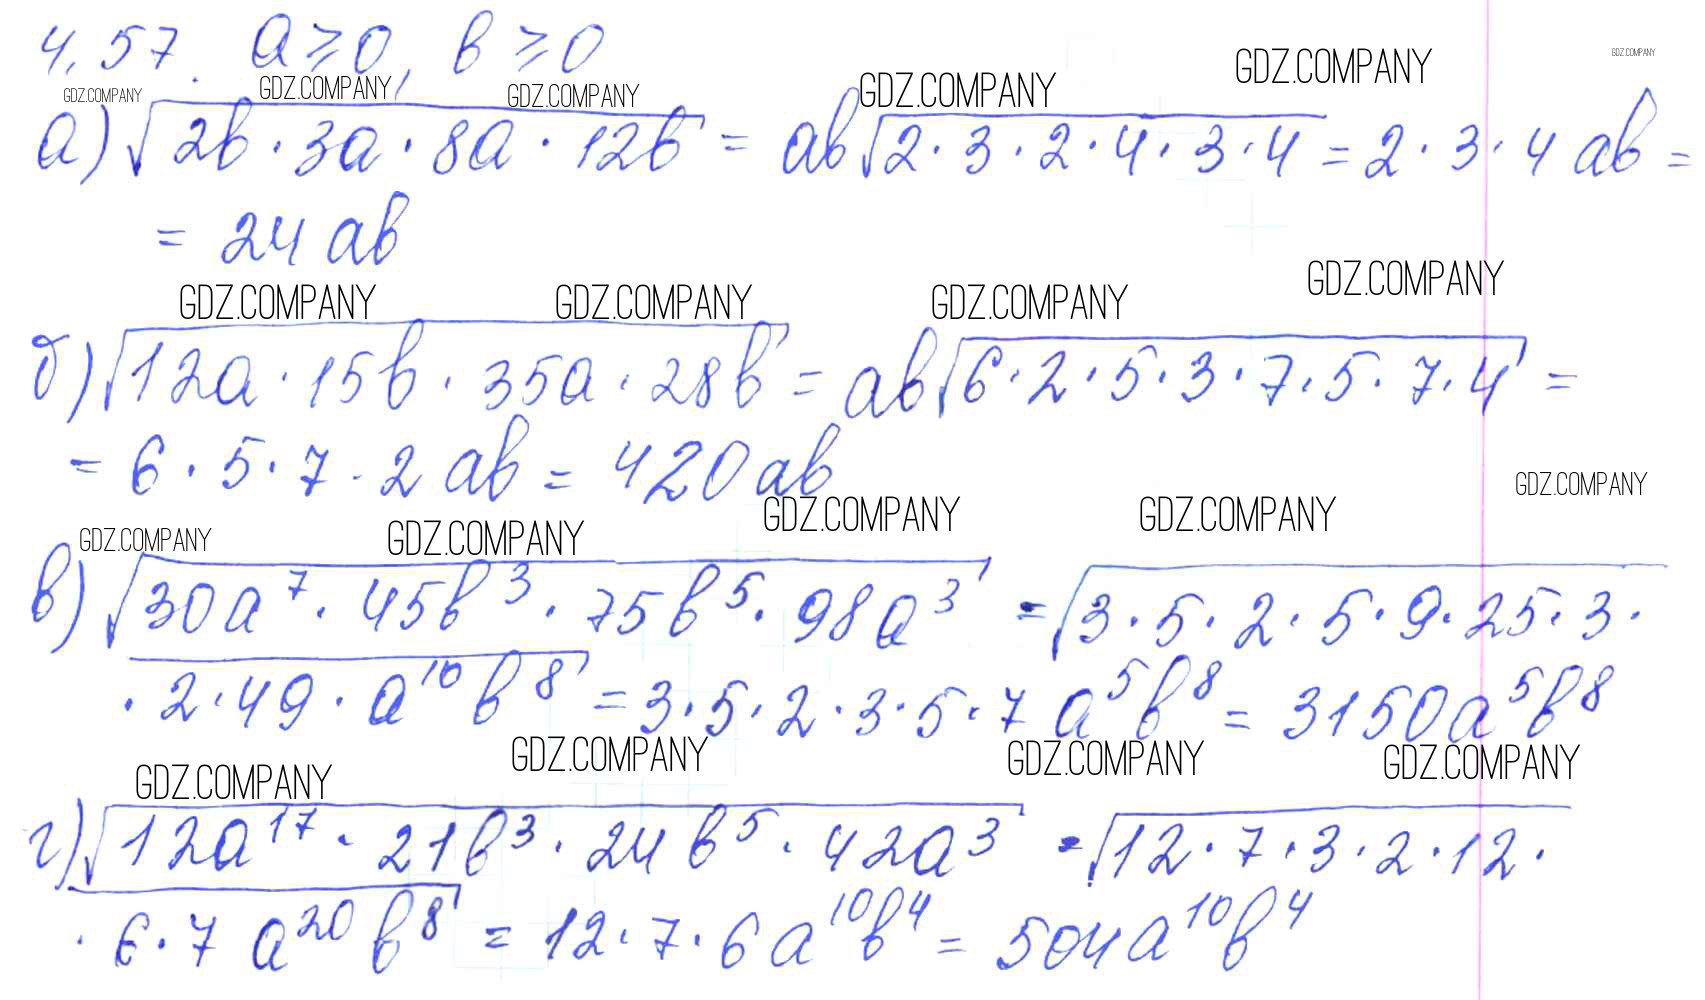 4.57. a ≥ 0, b ≥ 0
GDZ.COMPANY GDZ.COMPANY GDZ.COMPANY GDZ.COMPANY GDZ.COMPANY GDZ.COMPANY
а) √(2b · 3a · 8a · 12b) = ab√(2 · 3 · 2 · 4 · 3 · 4) = 2 · 3 · 4 ab =
= 24 ab
GDZ.COMPANY GDZ.COMPANY GDZ.COMPANY GDZ.COMPANY
б) √(12a · 15b · 35a · 28b) = ab√(6 · 2 · 5 · 3 · 7 · 5 · 7 · 4) =
= 6 · 5 · 7 · 2 ab = 420 ab
GDZ.COMPANY GDZ.COMPANY GDZ.COMPANY GDZ.COMPANY GDZ.COMPANY
в) √(30a⁷ · 45b³ · 75b⁵ · 98a³) = √(3 · 5 · 2 · 5 · 9 · 25 · 3 ·
· 2 · 49 · a¹⁰b⁸) = 3 · 5 · 2 · 3 · 5 · 7 a⁵b⁸ = 3150a⁵b⁸
GDZ.COMPANY GDZ.COMPANY GDZ.COMPANY GDZ.COMPANY
г) √(12a¹⁷ · 21b³ · 24b⁵ · 42a³) = √(12 · 7 · 3 · 2 · 12 ·
· 6 · 7 a²⁰b⁸) = 12 · 7 · 6a¹⁰b⁴ = 504a¹⁰b⁴